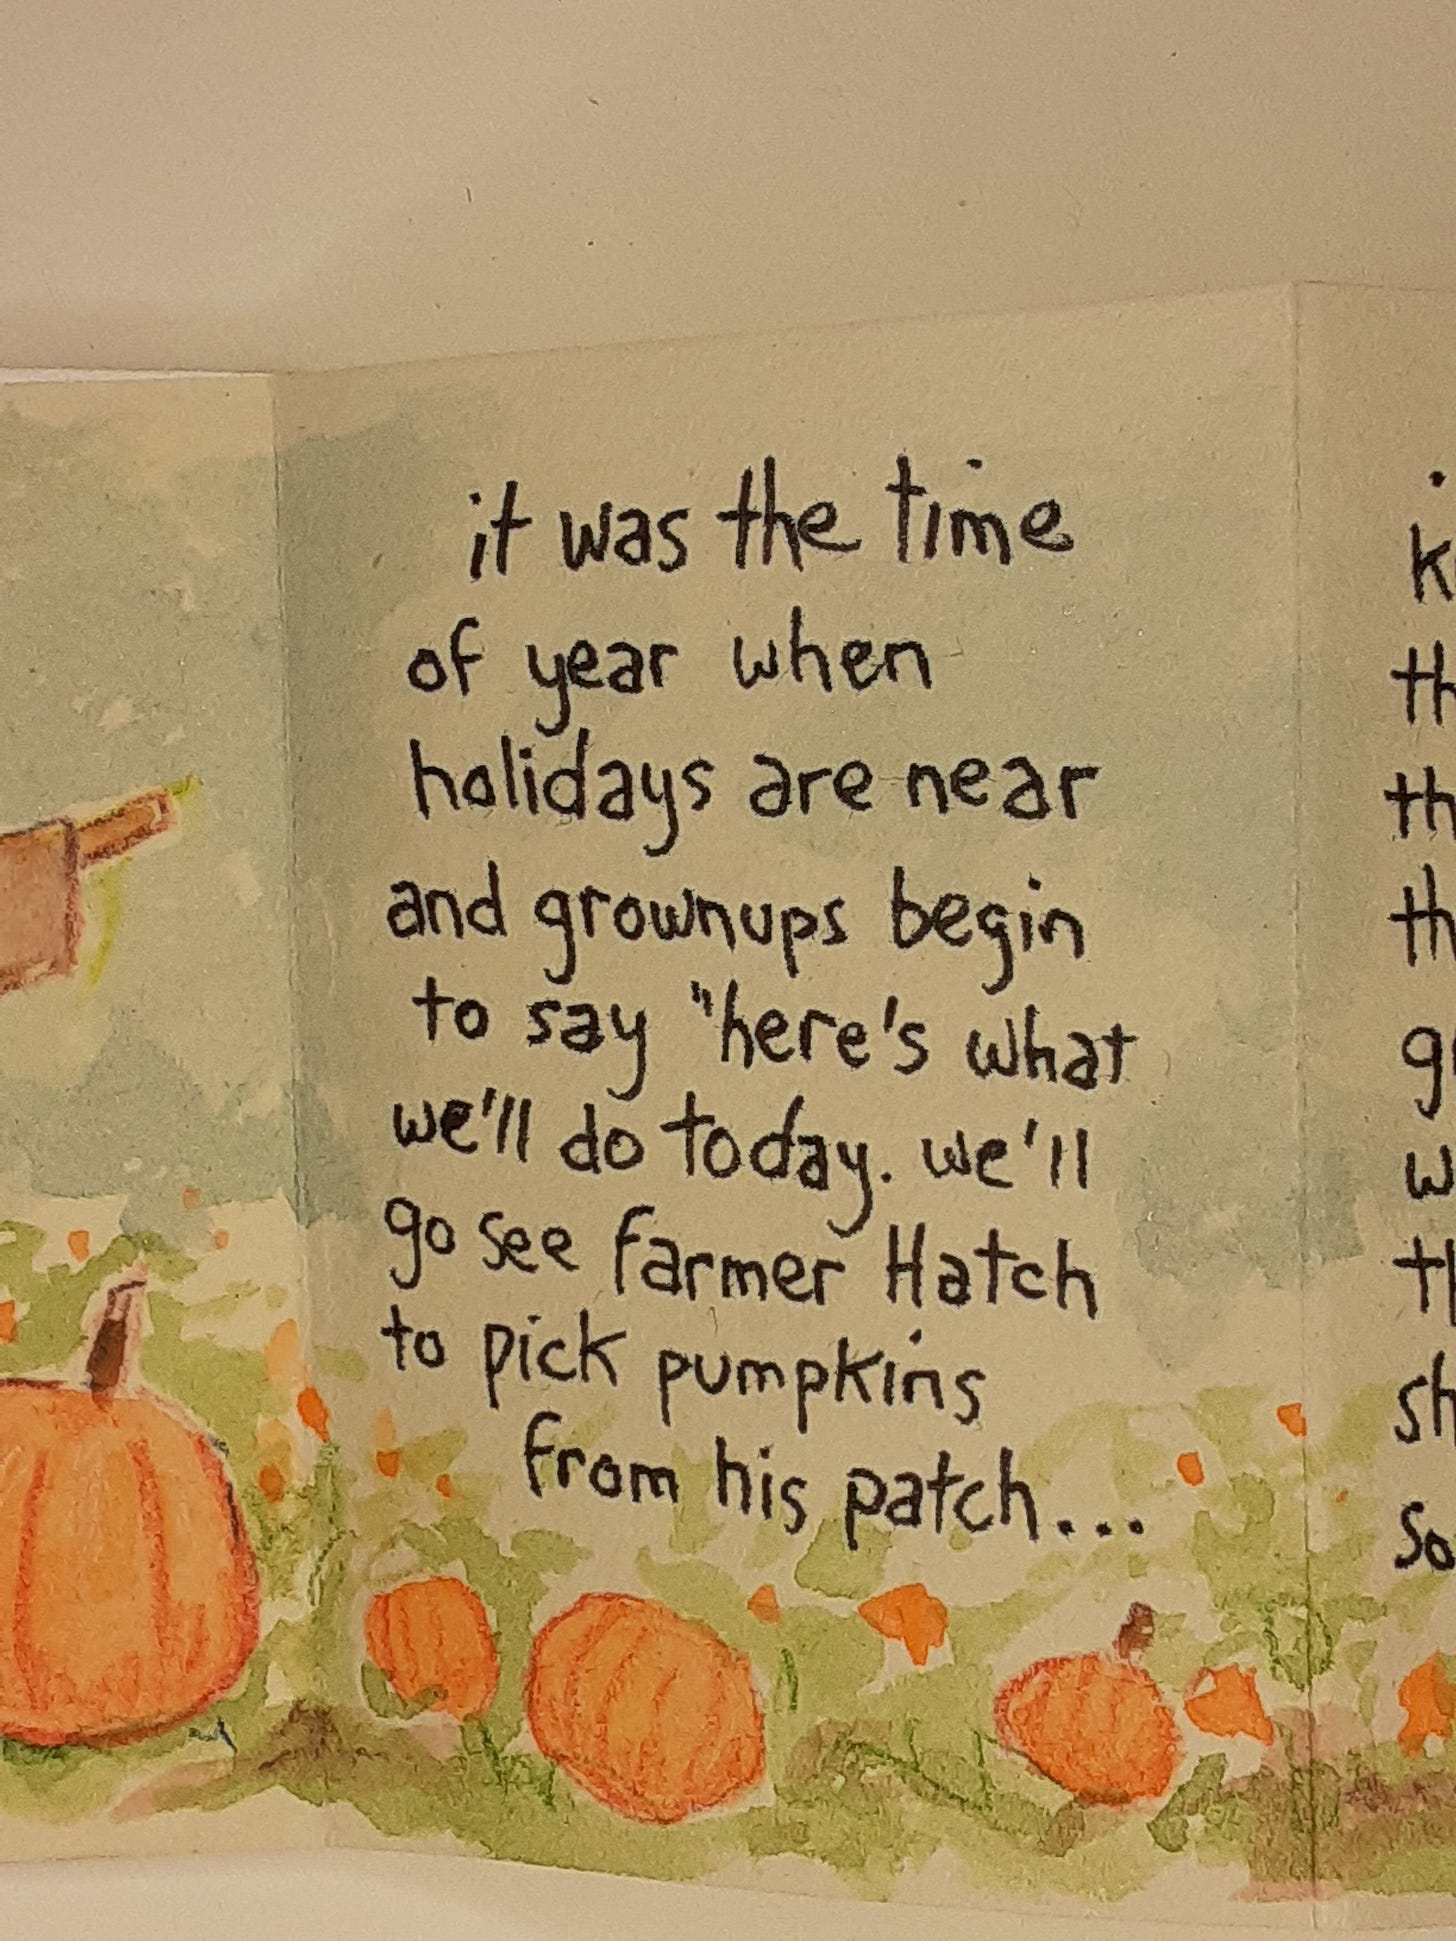 it was the time
of year when
holidays are near
and grownups begin
to say "here's what
we'll do today. we'll
go see farmer Hatch
to pick pumpkins
from his patch...